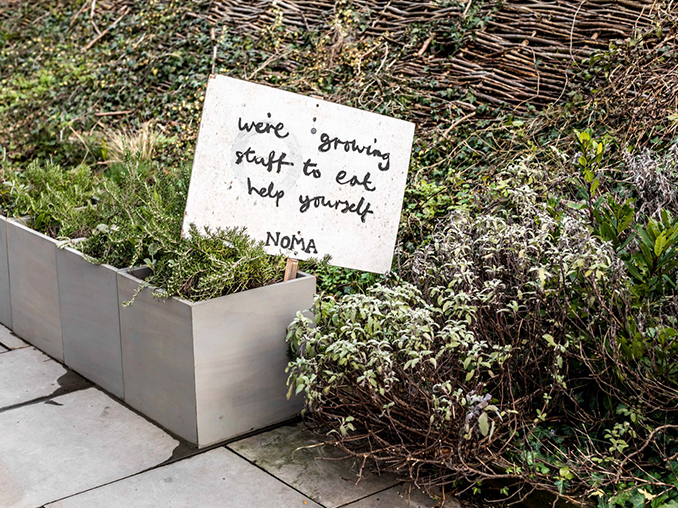 we're growing
stuff to eat
help yourself
NOMA